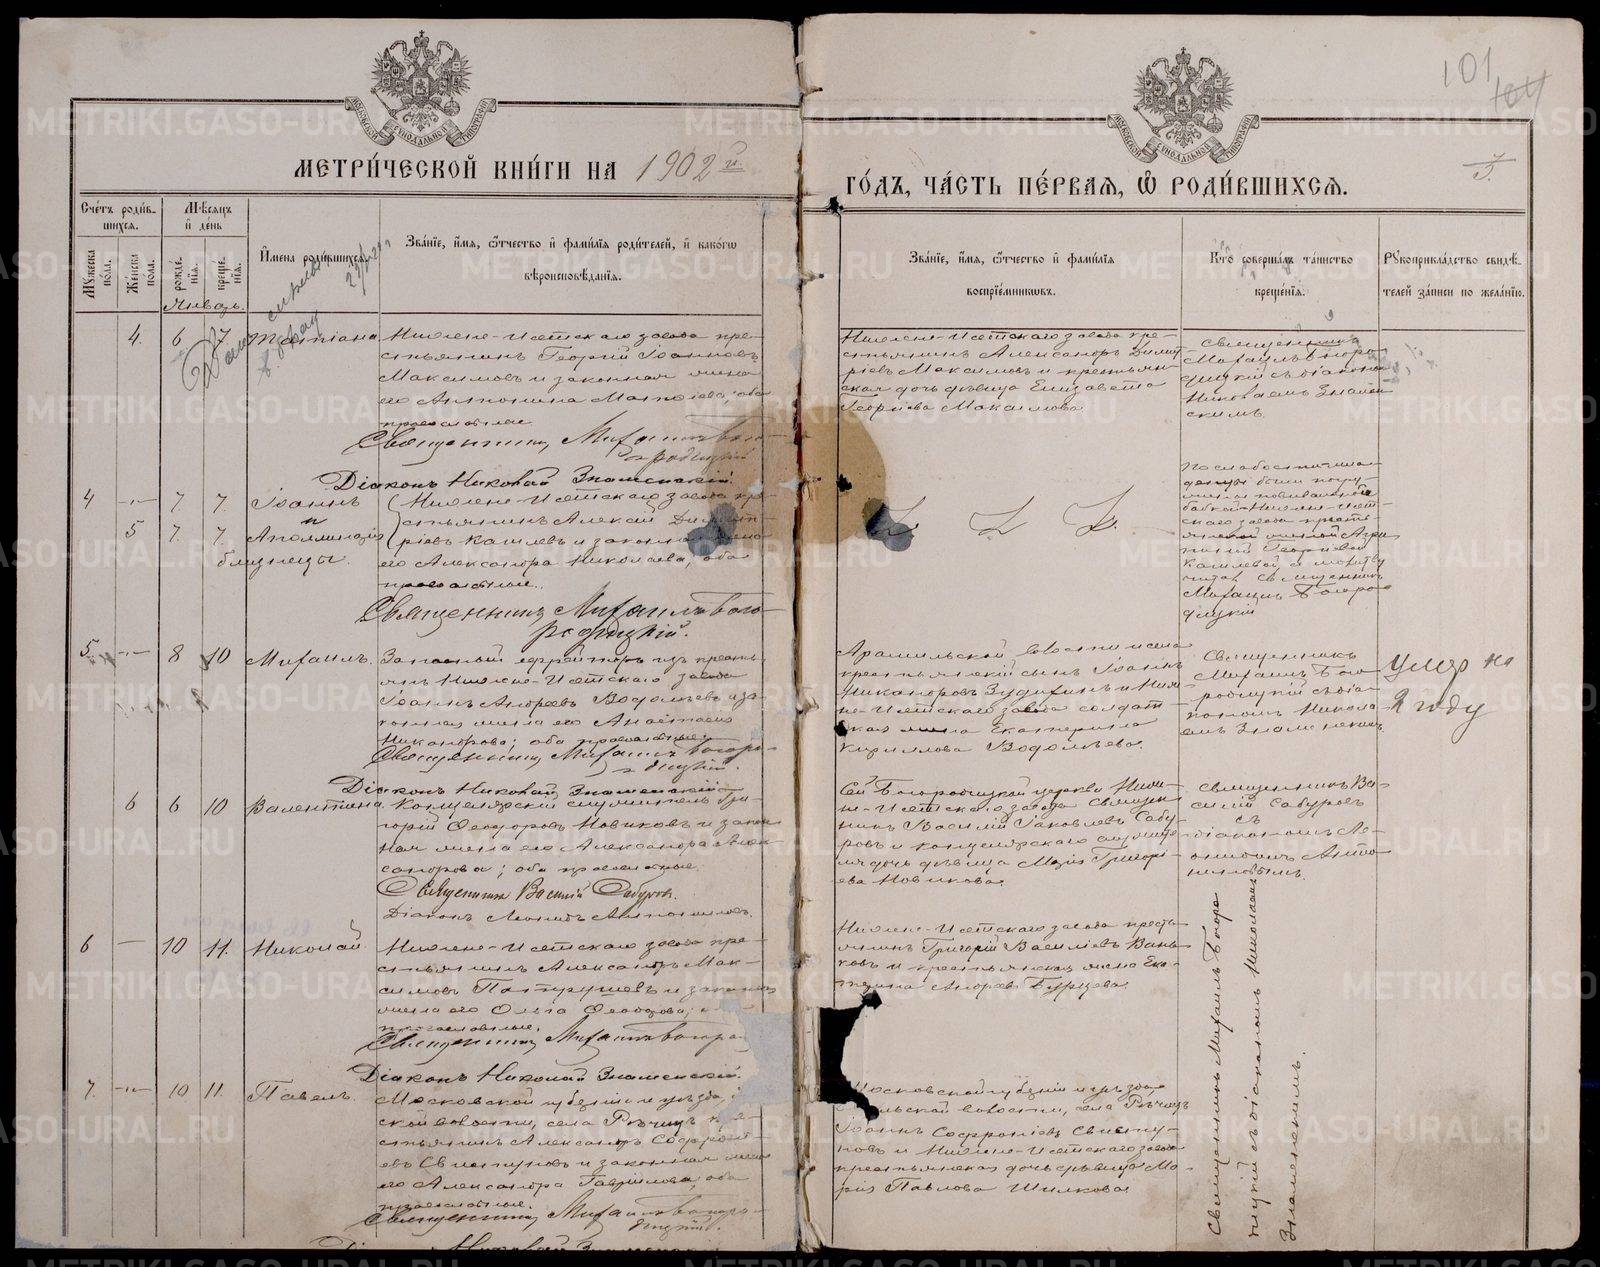 МЕТРИ́ЧЕСКОЙ КНИ́ГИ НА 1902 й
ГО́ДЪ, ЧА́СТЬ ПЕ́РВАЯ, Ѡ҆ РОДИ́ВШИХСѦ.
101
104
Сче́тъ роди́вшихсѧ.
Му́жеска по́ла.
Же́нска по́ла.
Мѣ́сѧцъ и҆ де́нь
рожде́нїѧ.
креще́нїѧ.
Январь.
И҆мена̀ роди́вшихсѧ.
Зва́нїе, и҆́мѧ, ѻ҆́тчество и҆ фами́лїѧ роди́телей, и҆ како́гѡ
вѣроисповѣ́данїѧ.
Зва́нїе, и҆́мѧ, ѻ҆́тчество и҆ фами́лїѧ
воспрїе́мникѡвъ.
Кто̀ соверша́лъ та́инство
креще́нїѧ.
Рꙋкоприкла́дство свидѣ́-
телей за́писи по жела́нїю.
4. 6 7 Татіана
Нижне-Исетскаго завода кре-
стьянинъ Георгій Іоанновъ
Максимовъ и законная жена
его Антонина Матѳіева, оба
православные
Священникъ Михаилъ Бого-
родицкій
Діаконъ Николай Знаменскій.
Нижне-Исетскаго завода кре-
стьянинъ Александръ Димит-
ріевъ Максимовъ и крестьян-
ская дочь дѣвица Елизавета
Георгіева Максимова
Священникъ
Михаилъ Богоро-
дицкій съ діакономъ
Николаемъ Знамен-
скимъ.
4 -"- 7. 7. Іоаннъ
и
5 7. 7. Аполлинарія
близнецы.
Нижне-Исетскаго завода кре-
стьянинъ Алексій Димит-
ріевъ Кашлевъ и законная жена
его Александра Николаева, оба
православные.
Священникъ Михаилъ Бого-
родицкій.
Z Z Z.
По слабости мла-
денцы были погру-
жены повивальной
бабкой Нижне-Исет-
скаго завода крестьян-
Георгіевой
Кашлевой, а молитву
читалъ священникъ
Михаилъ Богоро-
дицкій
5. -"- 8 10 Михаилъ.
Запасный ефрейторъ изъ кресть-
янъ Нижне-Исетскаго завода
Іоаннъ Андреевъ Водолѣевъ и за-
конная жена его Анастасія
Никанорова; оба православные
Священникъ Михаилъ Богоро-
дицкій.
Діаконъ Николай Знаменскій
Арамильской волости и села
крестьянскій сынъ Іоаннъ
Никаноровъ и Ниж-
не-Исетскаго завода солдат-
ская жена Екатерина
Кириллова Водолѣева.
Священникъ
Михаилъ Бого-
родицкій съ діа-
кономъ Никола-
емъ Знаменскимъ.
Умер на
2 году
6 6 10 Валентина
Канцелярскій служитель Гри-
горій Ѳеодоровъ Новиковъ и закон-
ная жена его Александра Алек-
сандрова; оба православные.
Священникъ Василій Сабуровъ.
Діаконъ Леонидъ Антониновъ.
Сей Богородицкой церкви Ниж-
не-Исетскаго завода Священ-
никъ Василій Іаковлевъ Сабу-
ровъ и канцелярскаго служите-
ля дочь дѣвица Марія Григорі-
ева Новикова.
Священникъ Ва-
силій Сабуровъ
съ
діакономъ Ле-
онидомъ Анто-
ниновымъ.
6 — 10 11. Николай
Нижне-Исетскаго завода кре-
стьянинъ Александръ Мак-
симовъ Патрушевъ и законная
жена его Ольга Ѳеодорова,
православные.
Священникъ Михаилъ Богоро-
Діаконъ Николай Знаменскій.
Нижне-Исетскаго завода кресть-
янинъ Григорій Василіевъ Вань-
ковъ и крестьянская жена Ека-
терина Андреева Бурцева.
7. -"- 10 11. Павелъ.
Московской губерніи и уѣзда,
ской волости, села Рѣчицъ кре-
стьянинъ Александръ Софроні-
евъ Свистуновъ и законная жена
его Александра Гавріилова, оба
православные.
Священникъ Михаилъ Богоро-
дицкій.
Діаконъ Николай Знаменскій
Московской губерніи и уѣзда
ской волости, села Рѣчицъ
Іоаннъ Софроніевъ Свисту-
новъ и Нижне-Исетскаго завода
крестьянская дочь дѣвица Ма-
рія Павлова Шилкова
Священникъ Михаилъ Богоро-
дицкій съ діакономъ Николаемъ
Знаменскимъ.
METRIKI.GASO-URAL.RU